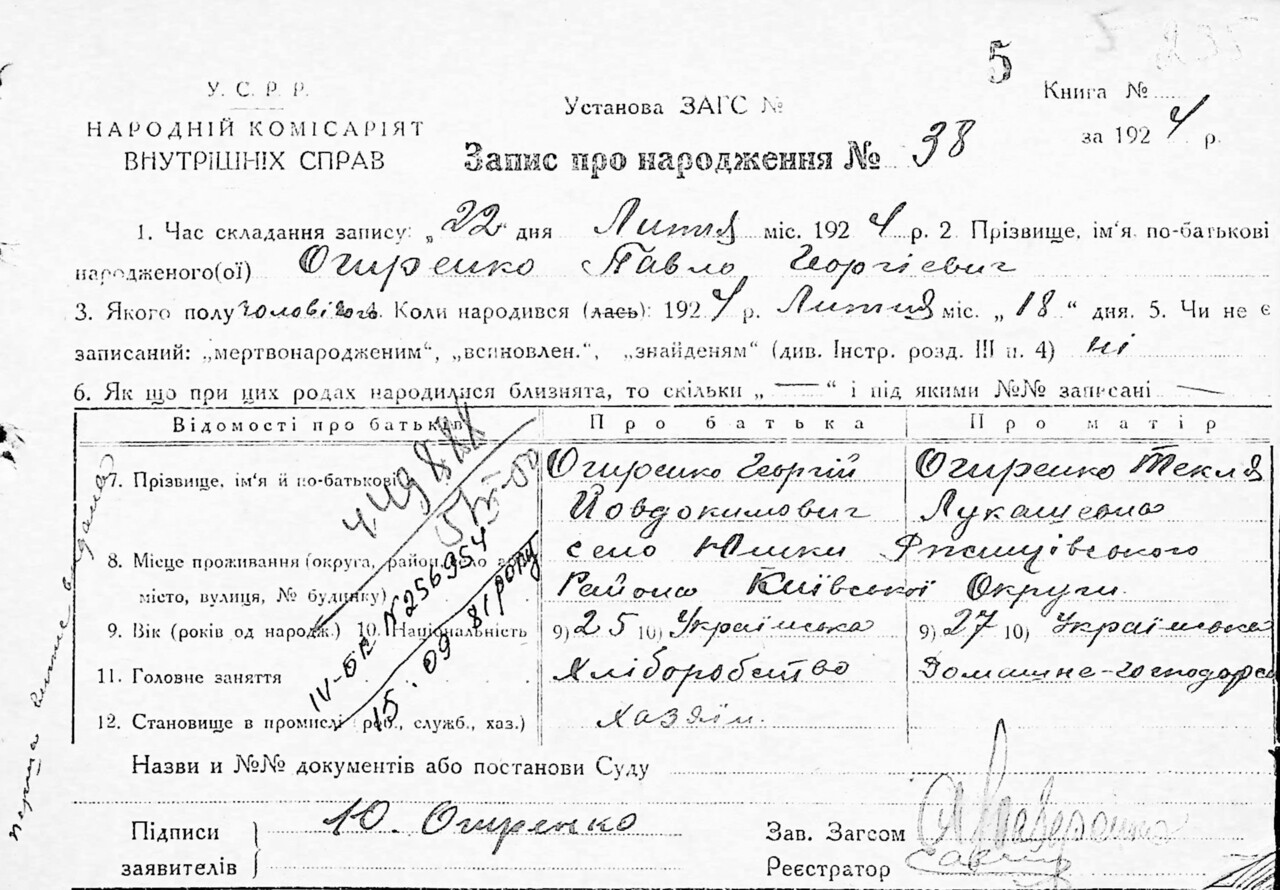 5
У. С. Р. Р.
НАРОДНІЙ КОМІСАРІЯТ
ВНУТРІШНІХ СПРАВ
Установа ЗАГС №
Книга №
за 1924 р.
Запис про народження № 38
1. Час складання запису: „22“ дня Лютня міс. 1924 р. 2. Прізвище, ім'я по-батькові
народженого(ої) Огиренко Павло Георгієвич
3. Якого полу чоловічого 4. Коли народився (лась): 1924 р. Лютня міс. „18“ дня. 5. Чи не є
записаний: „мертвонародженим“, „всиновлен.“, „знайденям“ (див. Інстр. розд. III п. 4) ні
6. Як що при цих родах народилися близнята, то скільки „—“ і під якими №№ записані —
Відомості про батьків
Про батька
Про матір
7. Прізвище, ім'я й по-батькові
Огиренко Георгій
Йовдокимович
Огиренко Текля
Лукашевна
8. Місце проживання (округа, район, село або
місто, вулиця, № будинку)
село Юшки Ржищівського
Района Київської Округи
9. Вік (років од народж.) 10. Національність
9) 25 10) Українська
9) 27 10) Українська
11. Головне заняття
Хліборобство
Домашне-господарс
12. Становище в промислі (роб., служб., хаз.)
хазяїн.
IV-БК №256954
15.09 81 року
Назви и №№ документів або постанови Суду
Підписи
заявителів
Ю. Огиренко
Зав. Загсом
Реєстратор